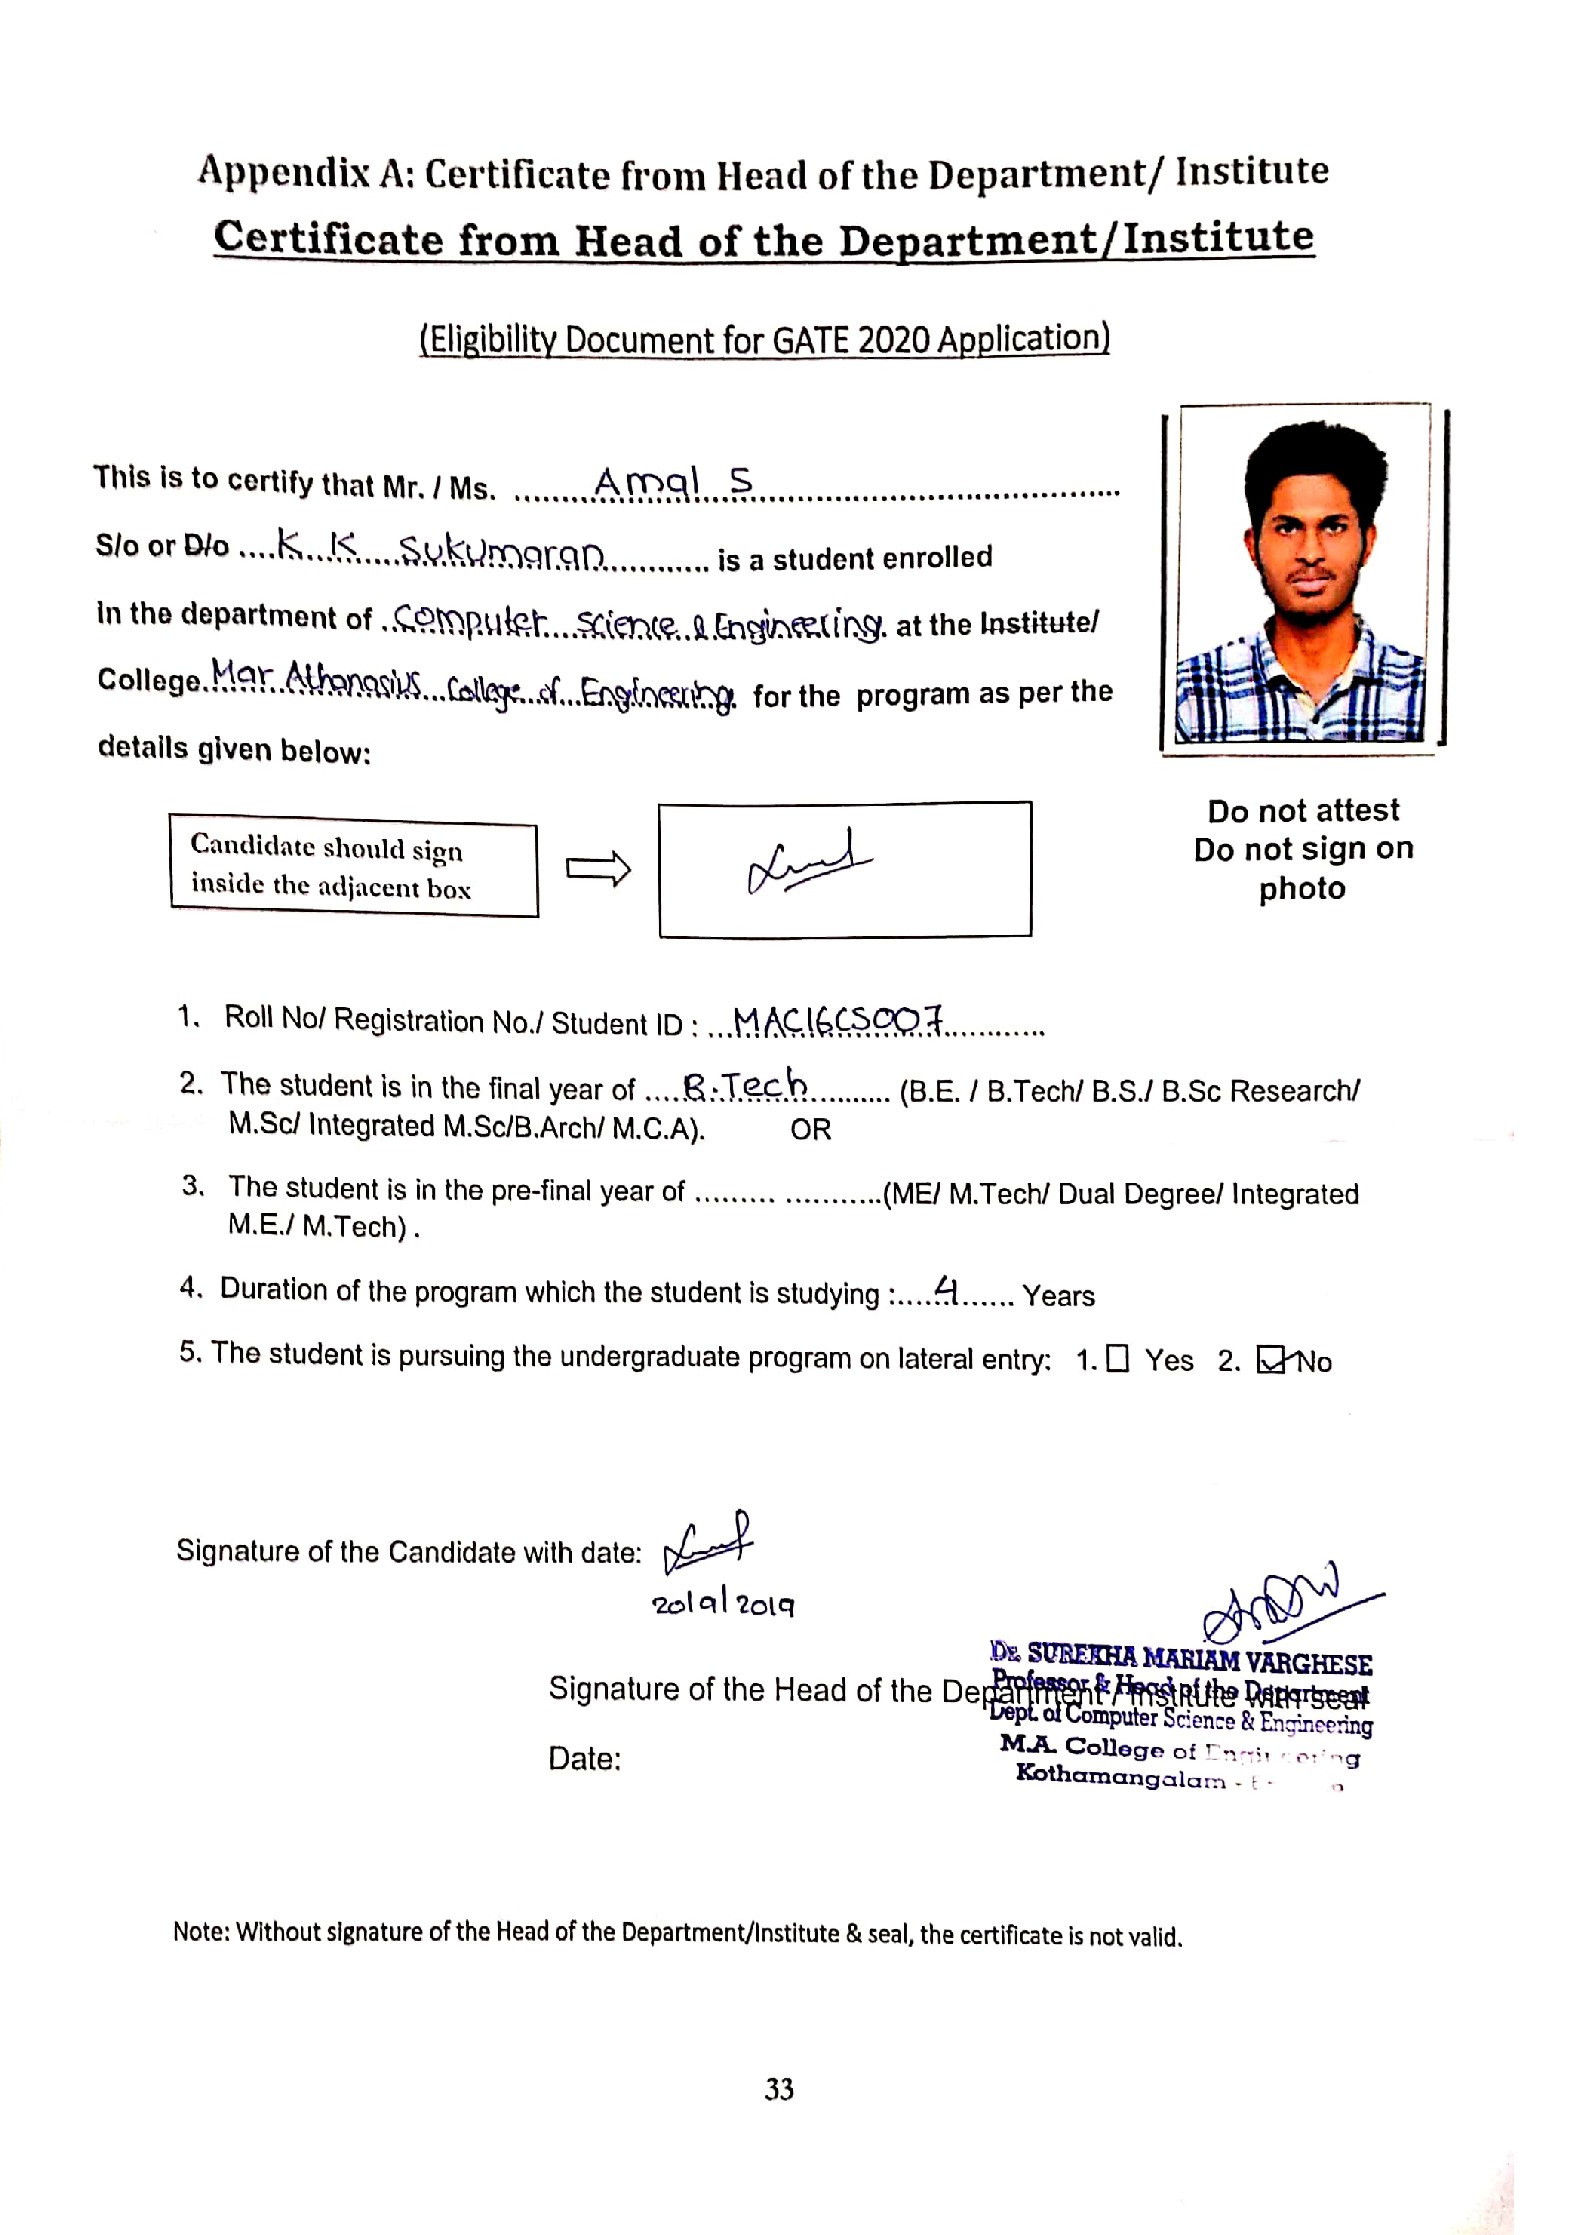 Appendix A: Certificate from Head of the Department/ Institute
Certificate from Head of the Department/Institute
(Eligibility Document for GATE 2020 Application)
This is to certify that Mr. / Ms. ......... Amal S ..........................................
S/o or D/o .... K. K. Sukumaran ............ is a student enrolled
in the department of .. Computer Science & Engineering. at the Institute/
College.. Mar Athanasius College of Engineering. for the program as per the
details given below:
Candidate should sign
inside the adjacent box
Do not attest
Do not sign on
photo
1. Roll No/ Registration No./ Student ID : ... MAC16CS007 ............
2. The student is in the final year of .... B.Tech .......... (B.E. / B.Tech/ B.S./ B.Sc Research/
M.Sc/ Integrated M.Sc/B.Arch/ M.C.A). OR
3. The student is in the pre-final year of ......... ...........(ME/ M.Tech/ Dual Degree/ Integrated
M.E./ M.Tech) .
4. Duration of the program which the student is studying :.... 4 ...... Years
5. The student is pursuing the undergraduate program on lateral entry: 1. ☐ Yes 2. ☑ No
Signature of the Candidate with date:
20/9/2019
Dr. SUREKHA MARIAM VARGHESE
Signature of the Head of the Department / Institute with seal
Professor & Head of the Department
Dept. of Computer Science & Engineering
M.A. College of Engineering
Date:
Kothamangalam -
Note: Without signature of the Head of the Department/Institute & seal, the certificate is not valid.
33